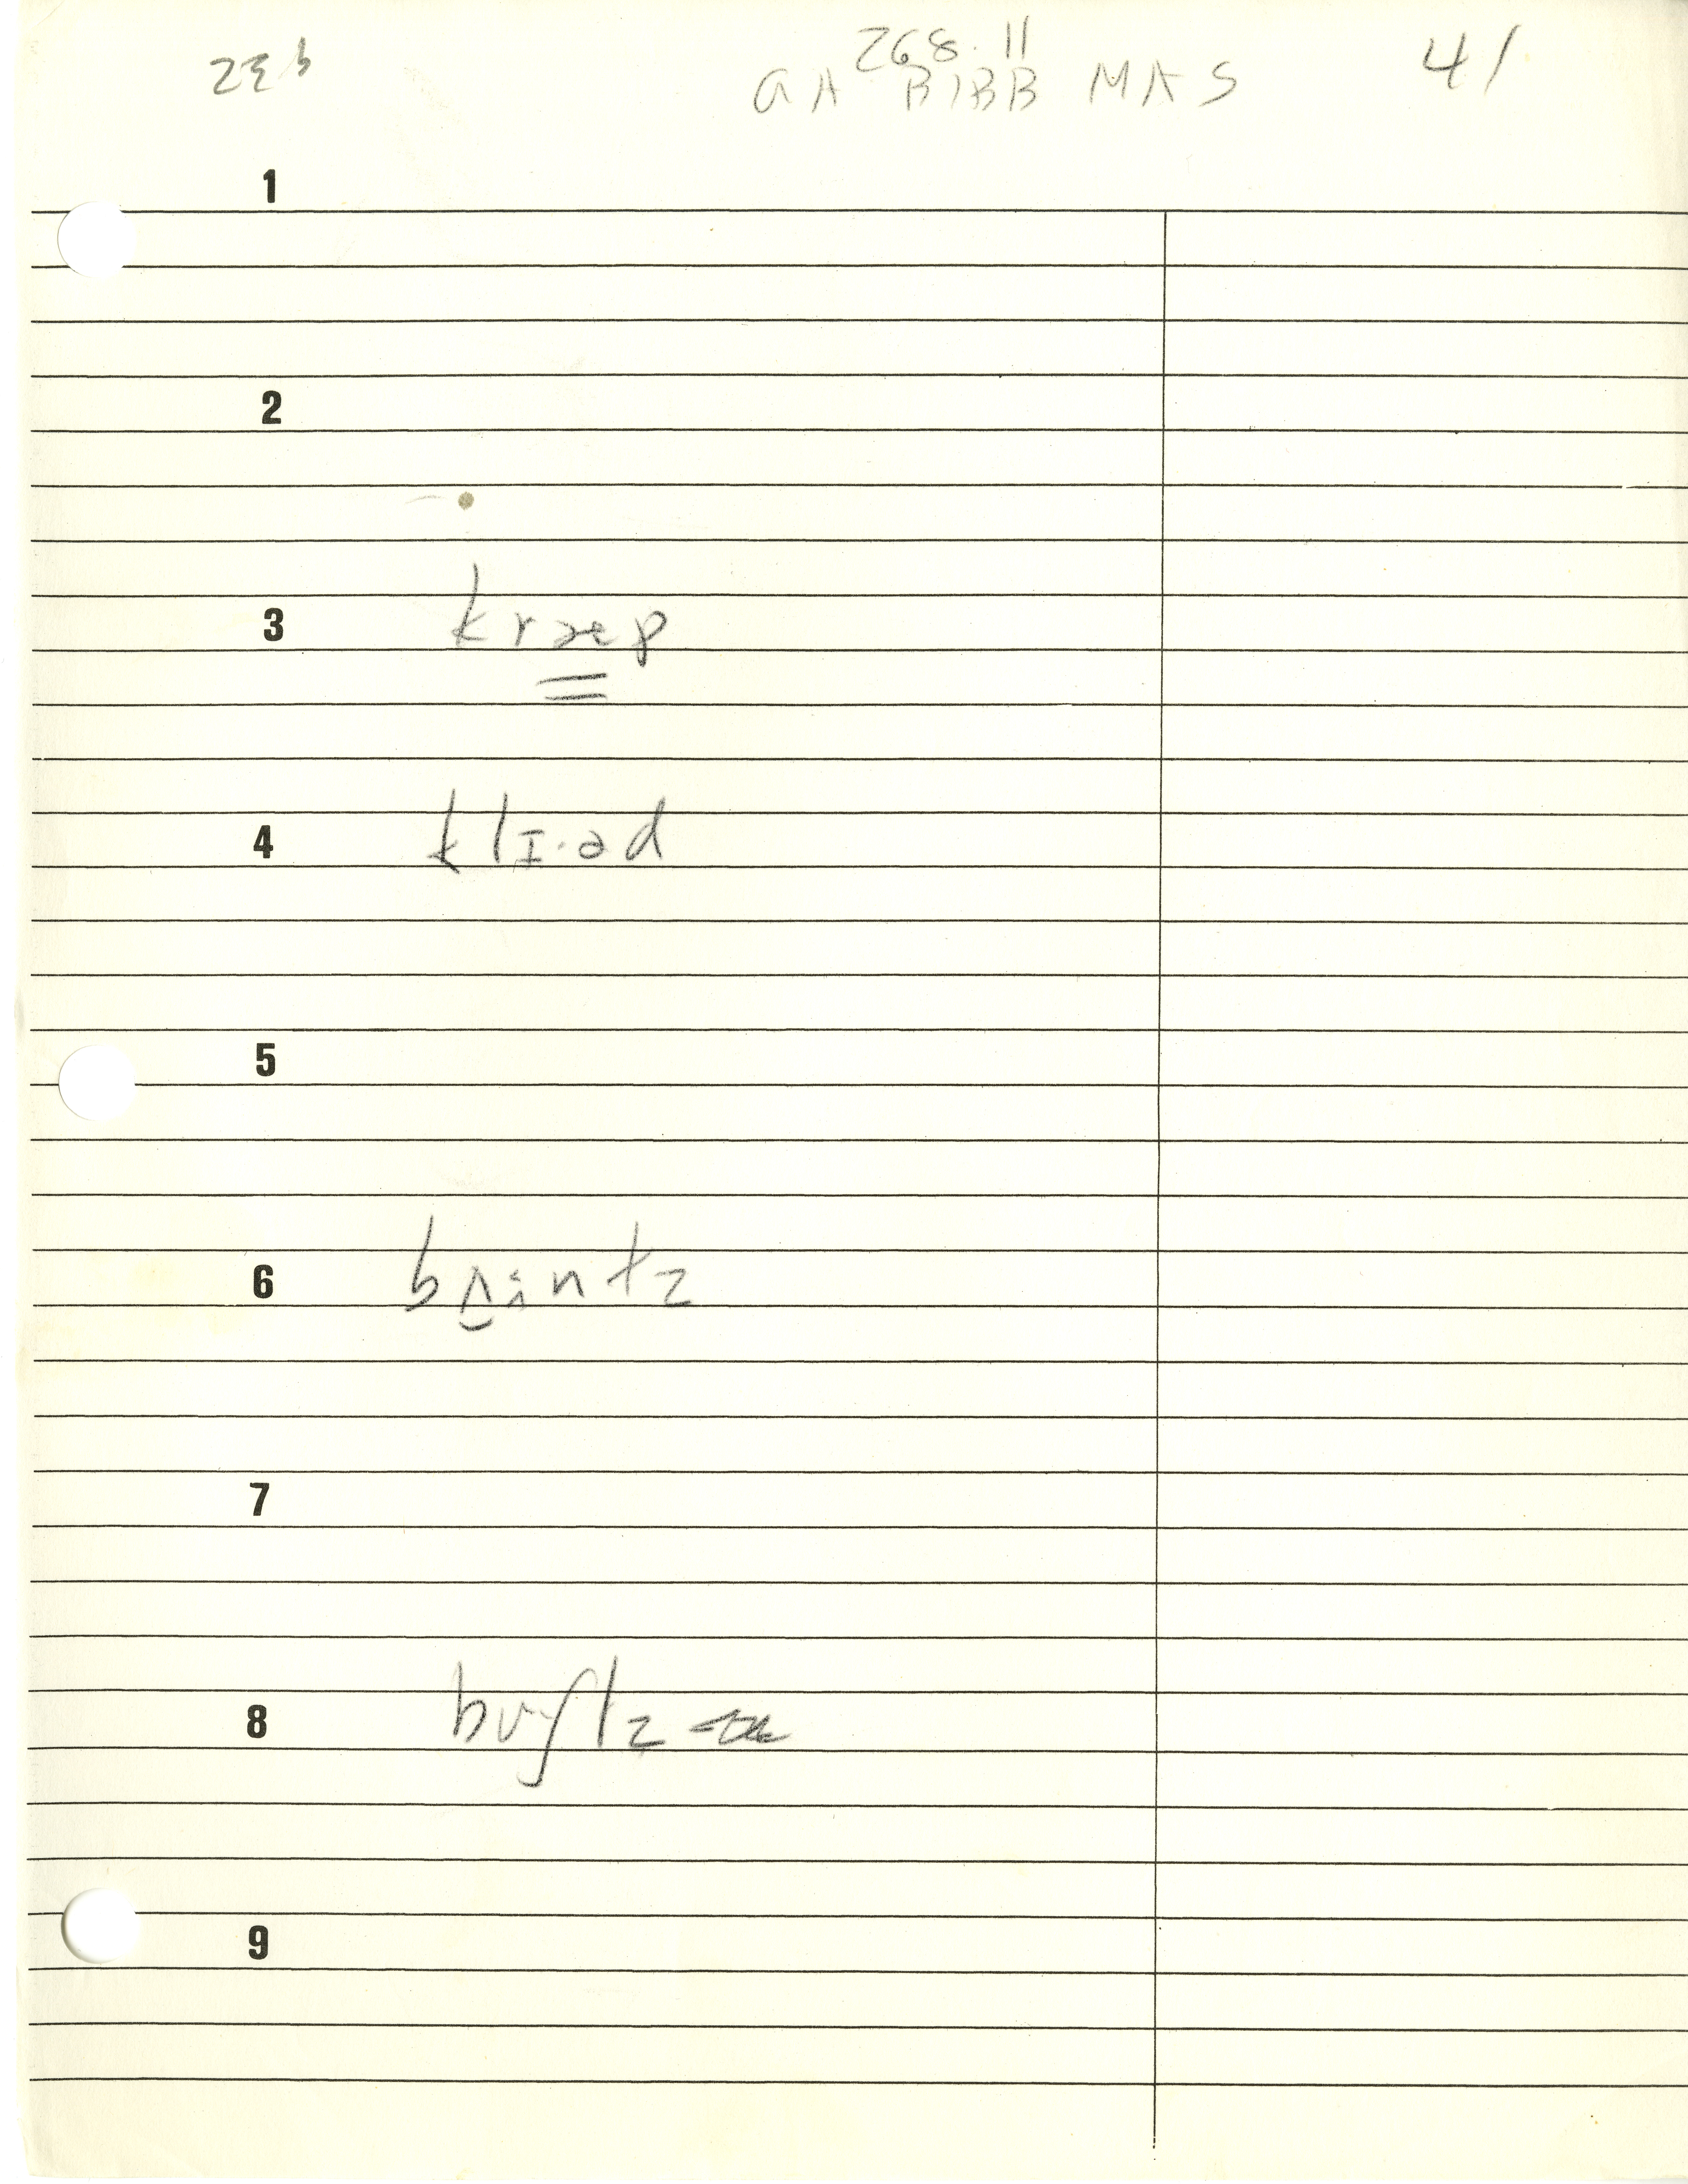 268.11
GA BIBB MAS 41
1
2
3 kræp
4 klɪ·əd
5
6 bʌintz
7
8
9